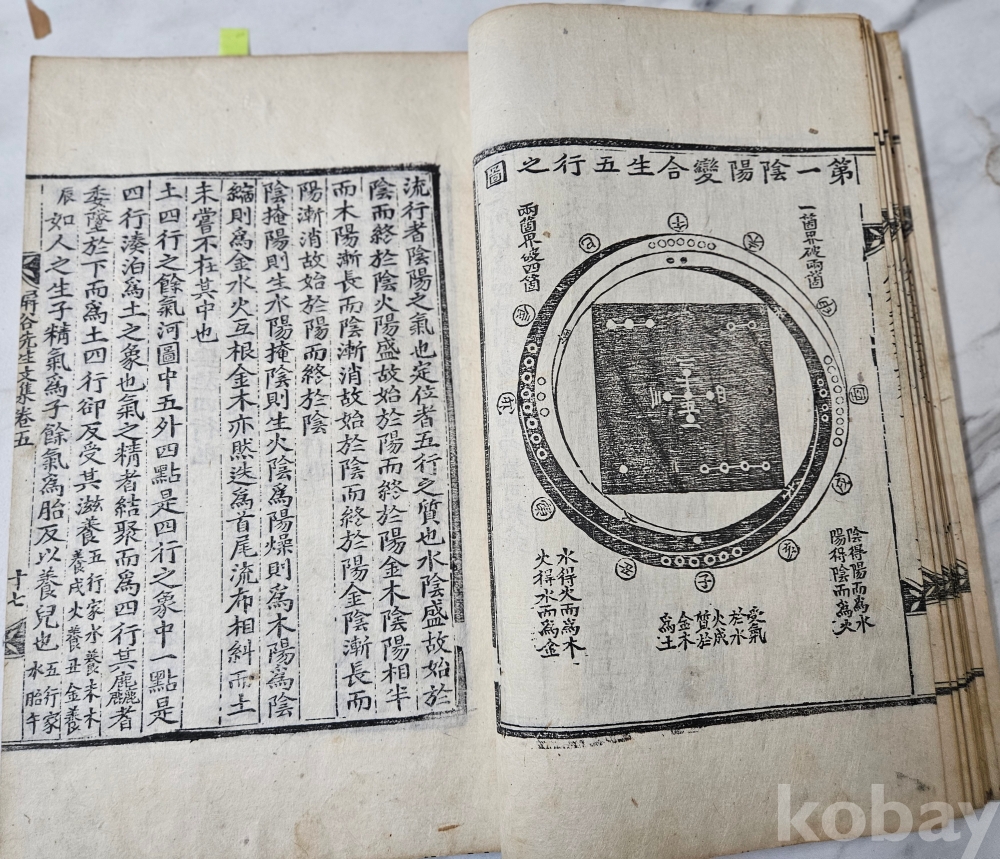 第一陰陽變合生五行之圖
一箇界破兩箇
兩箇界破四箇
午
未
酉
戌
亥
子
丑
卯
辰
巳
陰得陽而爲水
陽得陰而爲火
受氣
於水
火成
質於
金木
爲土
水得火而爲木
火得水而爲金
流行者陰陽之氣也定位者五行之質也水陰盛故始於
陰而終於陰火陽盛故始於陽而終於陽金木陰陽相半
而木陽漸長而陰漸消故始於陰而終於陽金陰漸長而
陽漸消故始於陽而終於陰
陰掩陽則生水陽掩陰則生火陰爲陽燥則爲木陽爲陰
縮則爲金水火互根金木亦然迭爲首尾流布相糾而土
未嘗不在其中也
土四行之餘氣河圖中五外四點是四行之象中一點是
四行湊泊爲土之象也氣之精者結聚而爲四行其麁者
委墜於下而爲土四行卻反受其滋養五行家水養未木養戌火養丑金養
辰如人之生子精氣爲子餘氣爲胎反以養兒也五行家水胎午
屛谷先生文集卷五
十七
kobay